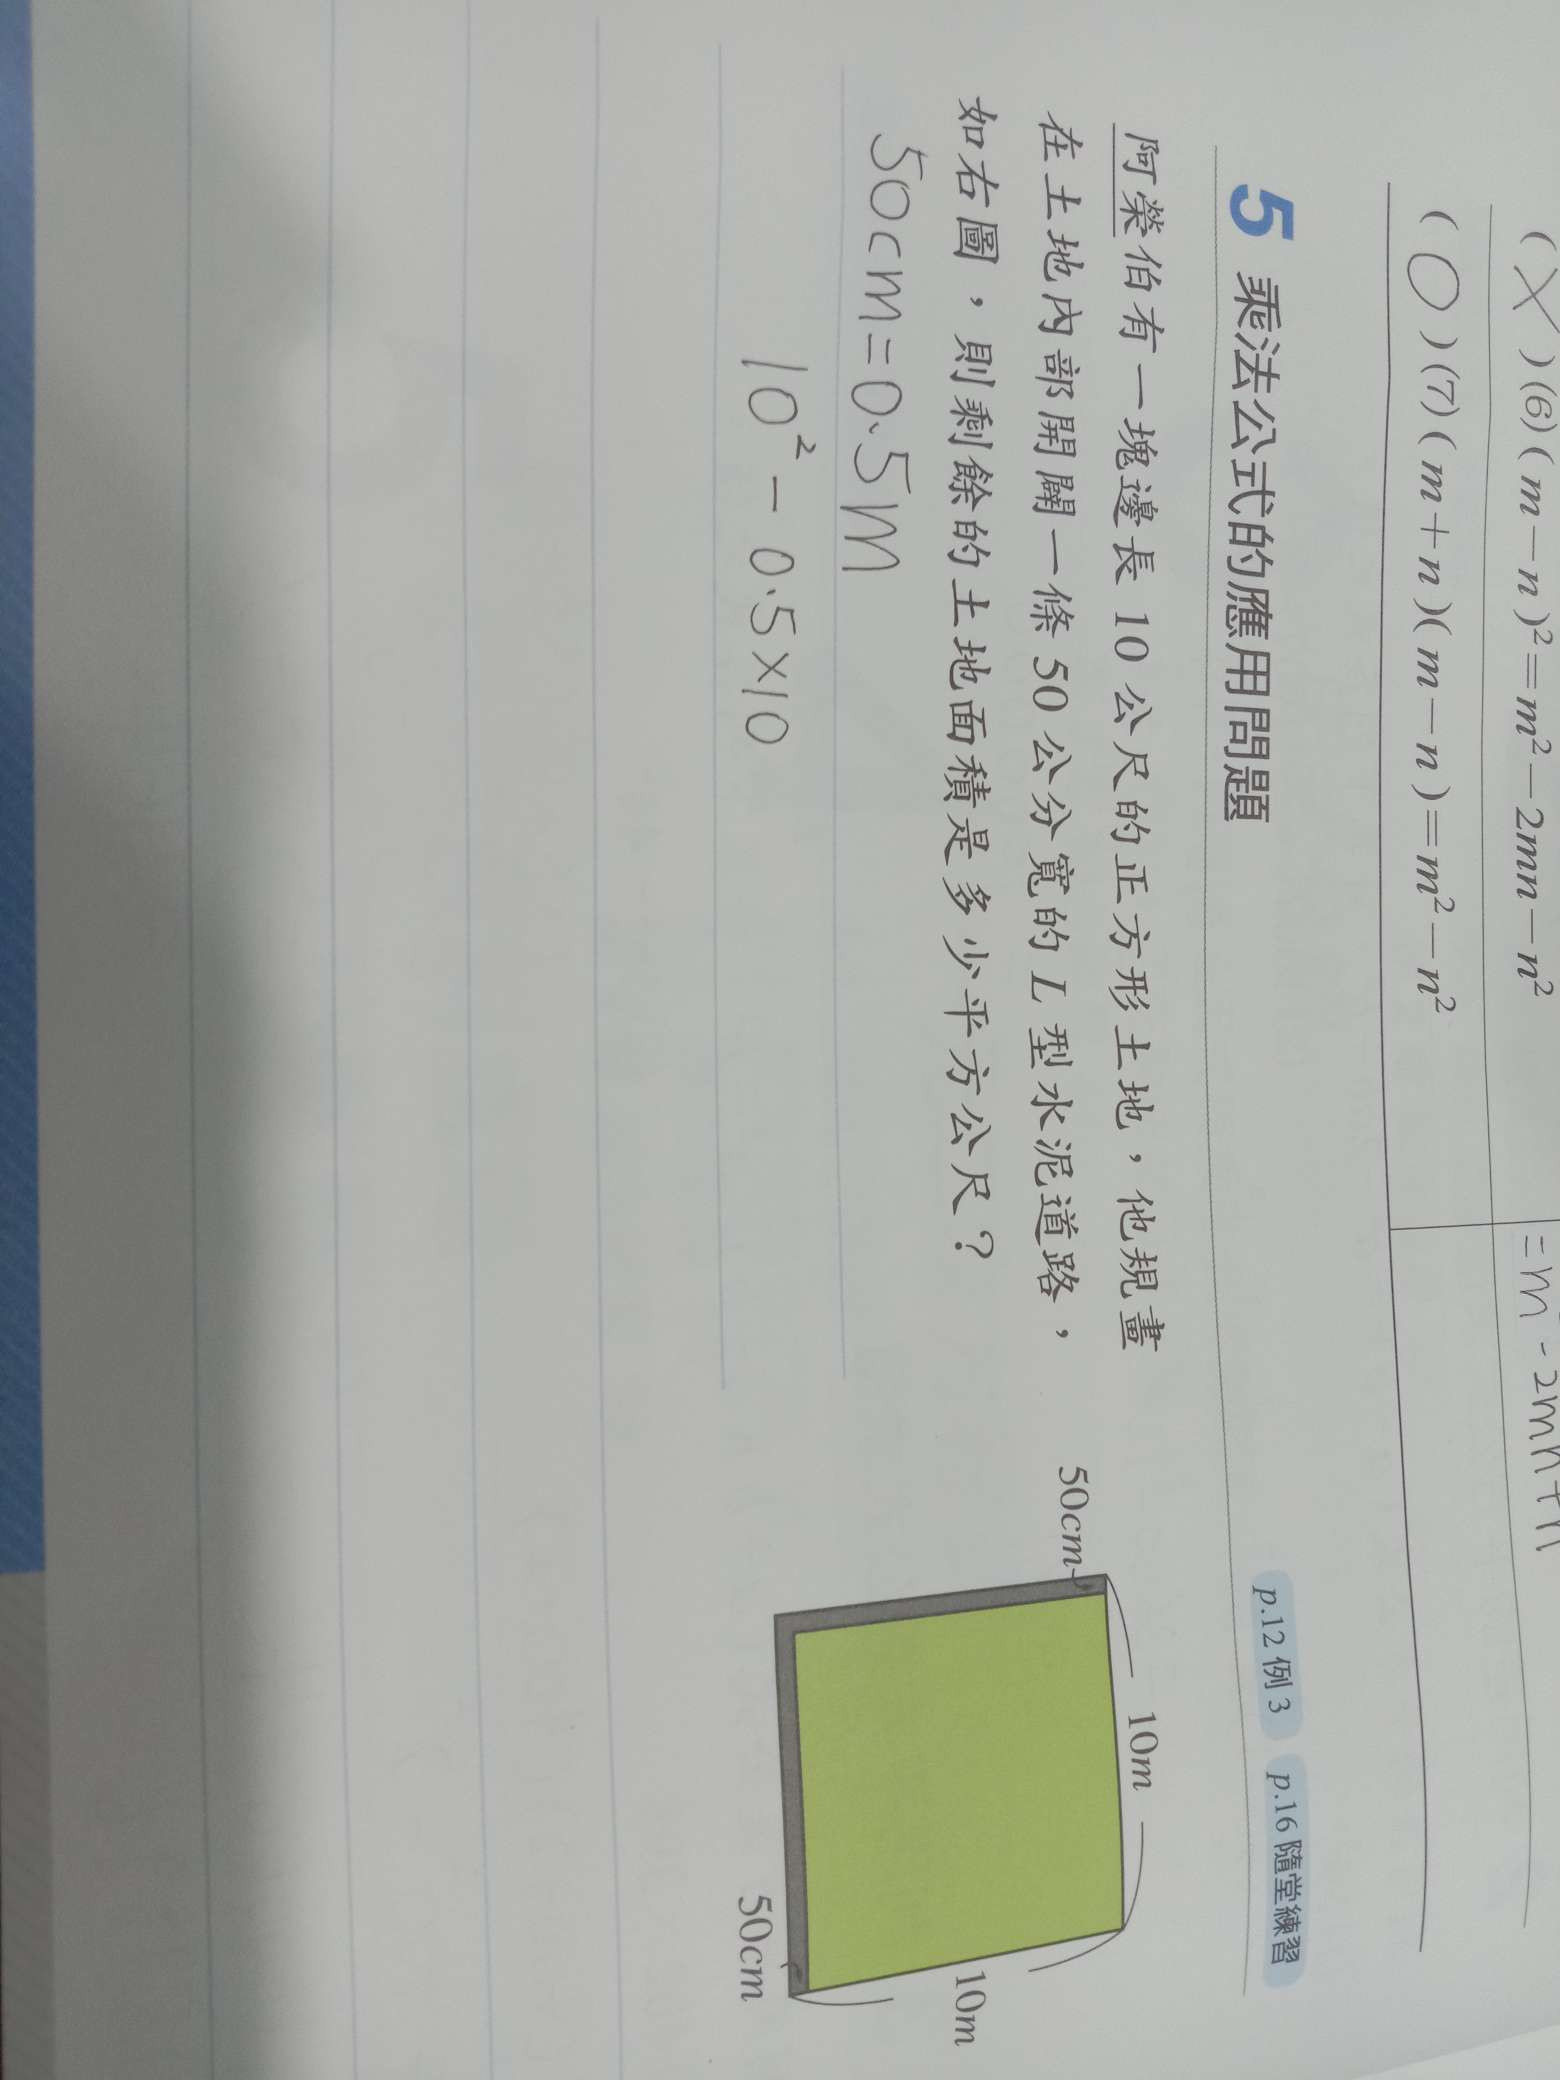 ( X ) (6) ( m－n )²＝m²－2mn－n²
＝m - 2mn+n
( O ) (7) ( m＋n )( m－n )＝m²－n²
5 乘法公式的應用問題
p.12 例 3 p.16 隨堂練習
阿榮伯有一塊邊長 10 公尺的正方形土地，他規畫
在土地內部開闢一條 50 公分寬的 L 型水泥道路，
如右圖，則剩餘的土地面積是多少平方公尺？
50cm＝0.5m
10²－0.5×10
10m
50cm
10m
50cm